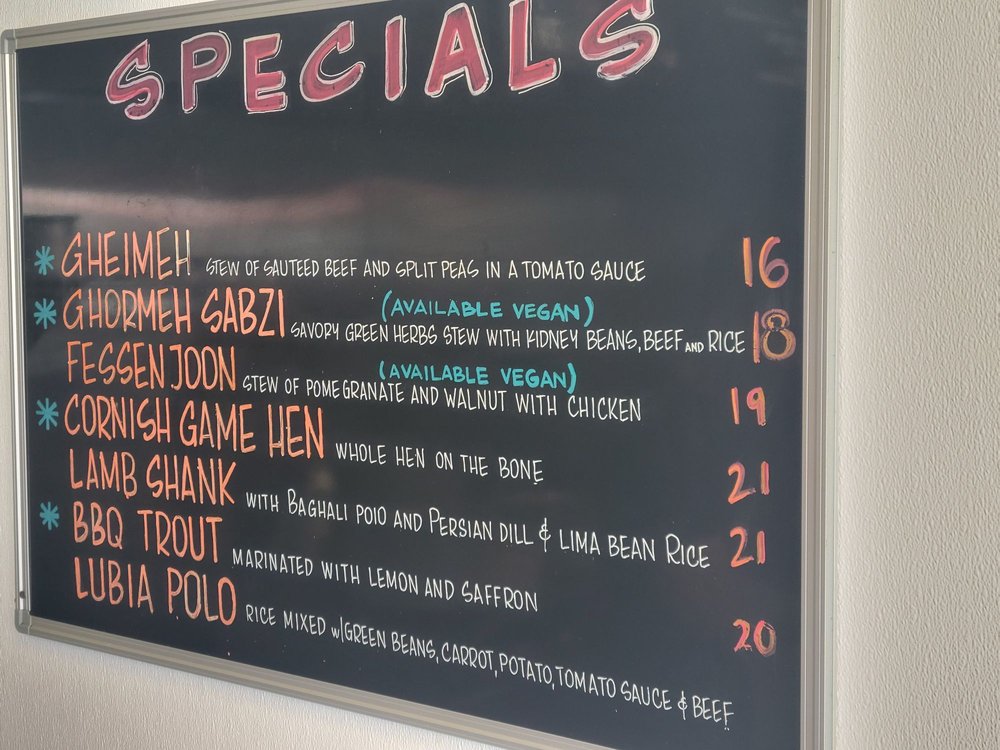 SPECIALS
* GHEIMEH STEW OF SAUTEED BEEF AND SPLIT PEAS IN A TOMATO SAUCE 16
(AVAILABLE VEGAN)
* GHORMEH SABZI SAVORY GREEN HERBS STEW WITH KIDNEY BEANS, BEEF AND RICE 18
(AVAILABLE VEGAN)
FESSENJOON STEW OF POMEGRANATE AND WALNUT WITH CHICKEN 19
* CORNISH GAME HEN WHOLE HEN ON THE BONE 21
LAMB SHANK WITH BAGHALI POLO AND PERSIAN DILL & LIMA BEAN RICE 21
* BBQ TROUT MARINATED WITH LEMON AND SAFFRON 20
LUBIA POLO RICE MIXED w/GREEN BEANS, CARROT, POTATO, TOMATO SAUCE & BEEF